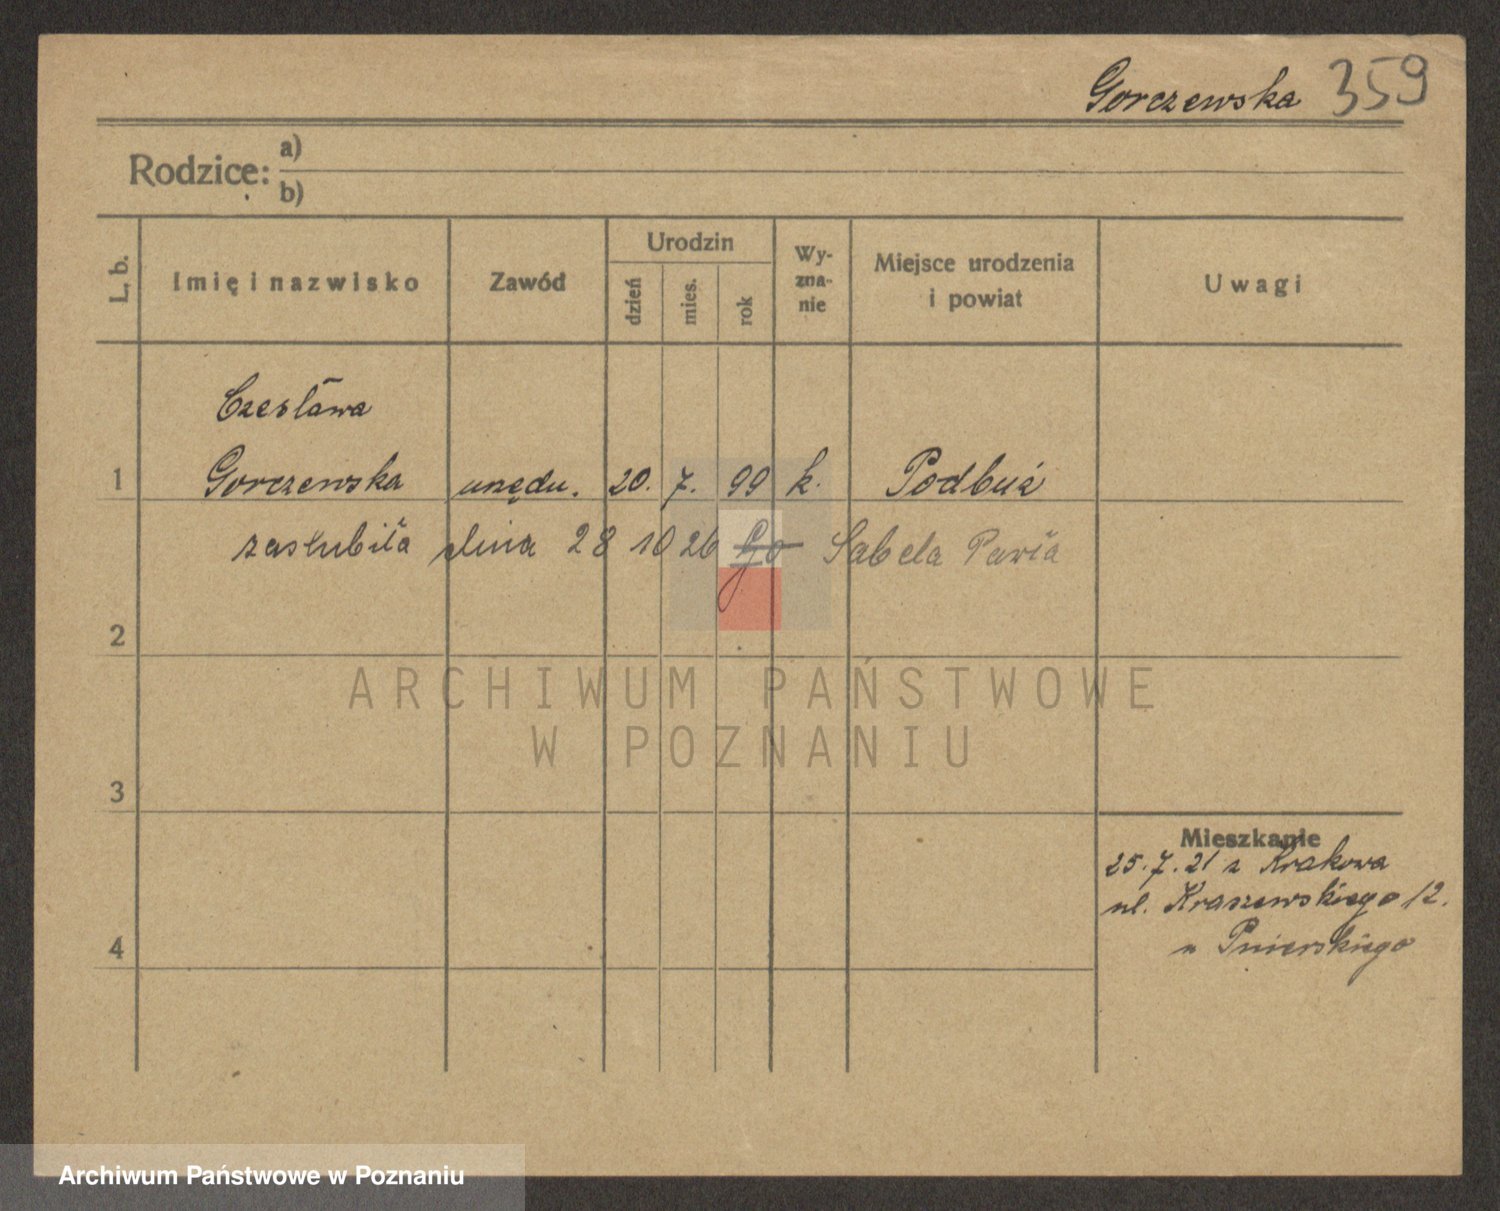 Gorczewska 359
Rodzice: a)
b)
L. b.
Imię i nazwisko
Zawód
Urodzin
dzień
mies.
rok
Wy-
zna-
nie
Miejsce urodzenia
i powiat
Uwagi
Czesława
1 Gorczewska urzędn. 20. 7. 99 k. Podbuż
zaślubiła dnia 28 10 26 Sabela Pawła
2
ARCHIWUM PAŃSTWOWE
W POZNANIU
3
Mieszkanie
25.7.21 z Krakowa
ul. Kraszewskiego 12.
u Pnierskiego
4
Archiwum Państwowe w Poznaniu